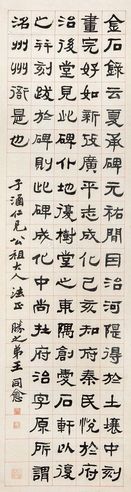 金石錄云夏承碑元祐閒因治河隄得於土壤中刻
畫完好如新攷廣平志成化己亥知府秦民悅於府
治後堂見此碑仆地後樹堂之東隅創愛石軒以
之并刻跋於碑則此碑中尚在府治字原所謂
洺州州衙是也
子涵仁兄公祖大人法正 勝之弟王同愈